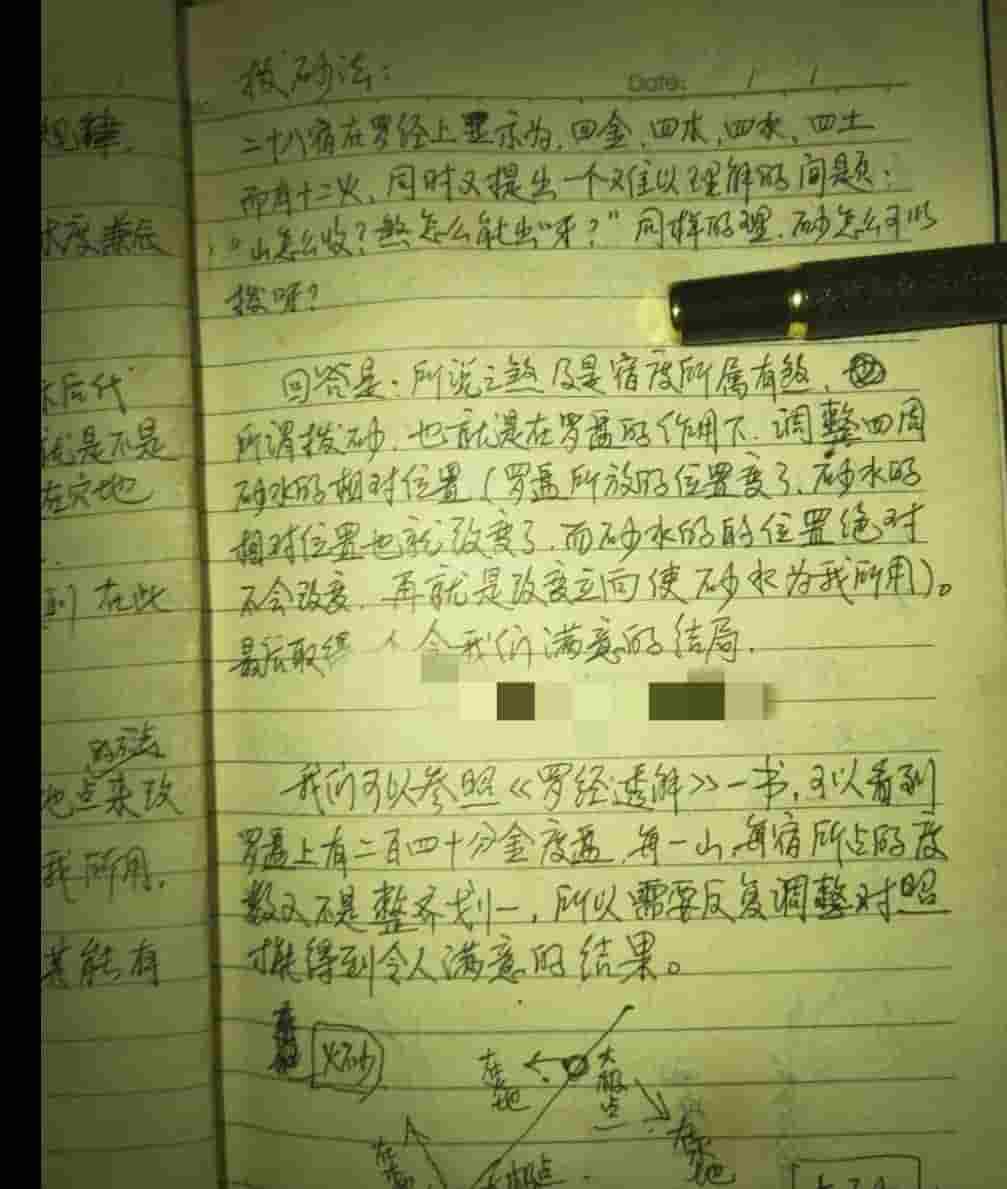 拨砂法:
Date: / /
二十八宿在罗经上显示为,四金、四木、四水、四土
而有十二火,同时又提出一个难以理解的问题:
“山怎么收?煞怎么能出呀?”同样的理,砂怎么可以
拨呀?
回答是:所说之煞及是宿度所属有煞,
所谓拨砂,也就是在罗盘的作用下,调整四周
砂水的相对位置(罗盘所放的位置变了,砂水的
相对位置也就改变了,而砂水的的位置绝对
不会改变,再就是改变立向使砂水为我所用)。
最后取得 个令我们满意的结局.
我们可以参照《罗经透解》一书,可以看到
罗盘上有二百四十分金度盘,每一山,每宿所占的度
数又不是整齐划一,所以需要反复调整对照
才能得到令人满意的结果。
火砂
太极点
规律,
度兼辰
后代
就是不是
在穴地
到 在此
的方法
地点来改
我所用,
其能有